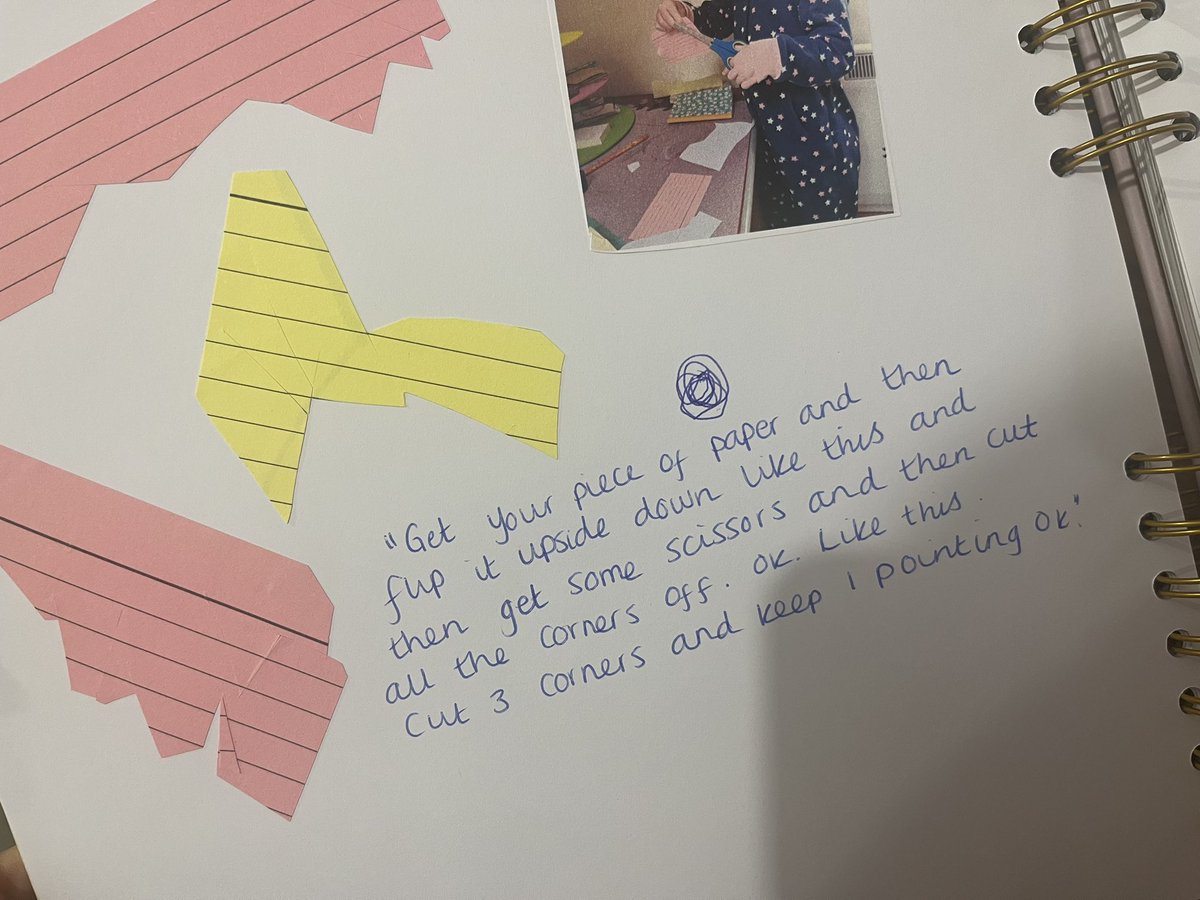 "Get your piece of paper and then
flip it upside down like this and
then get some scissors and then cut
all the corners off. ok. Like this.
Cut 3 corners and keep 1 pointing ok."